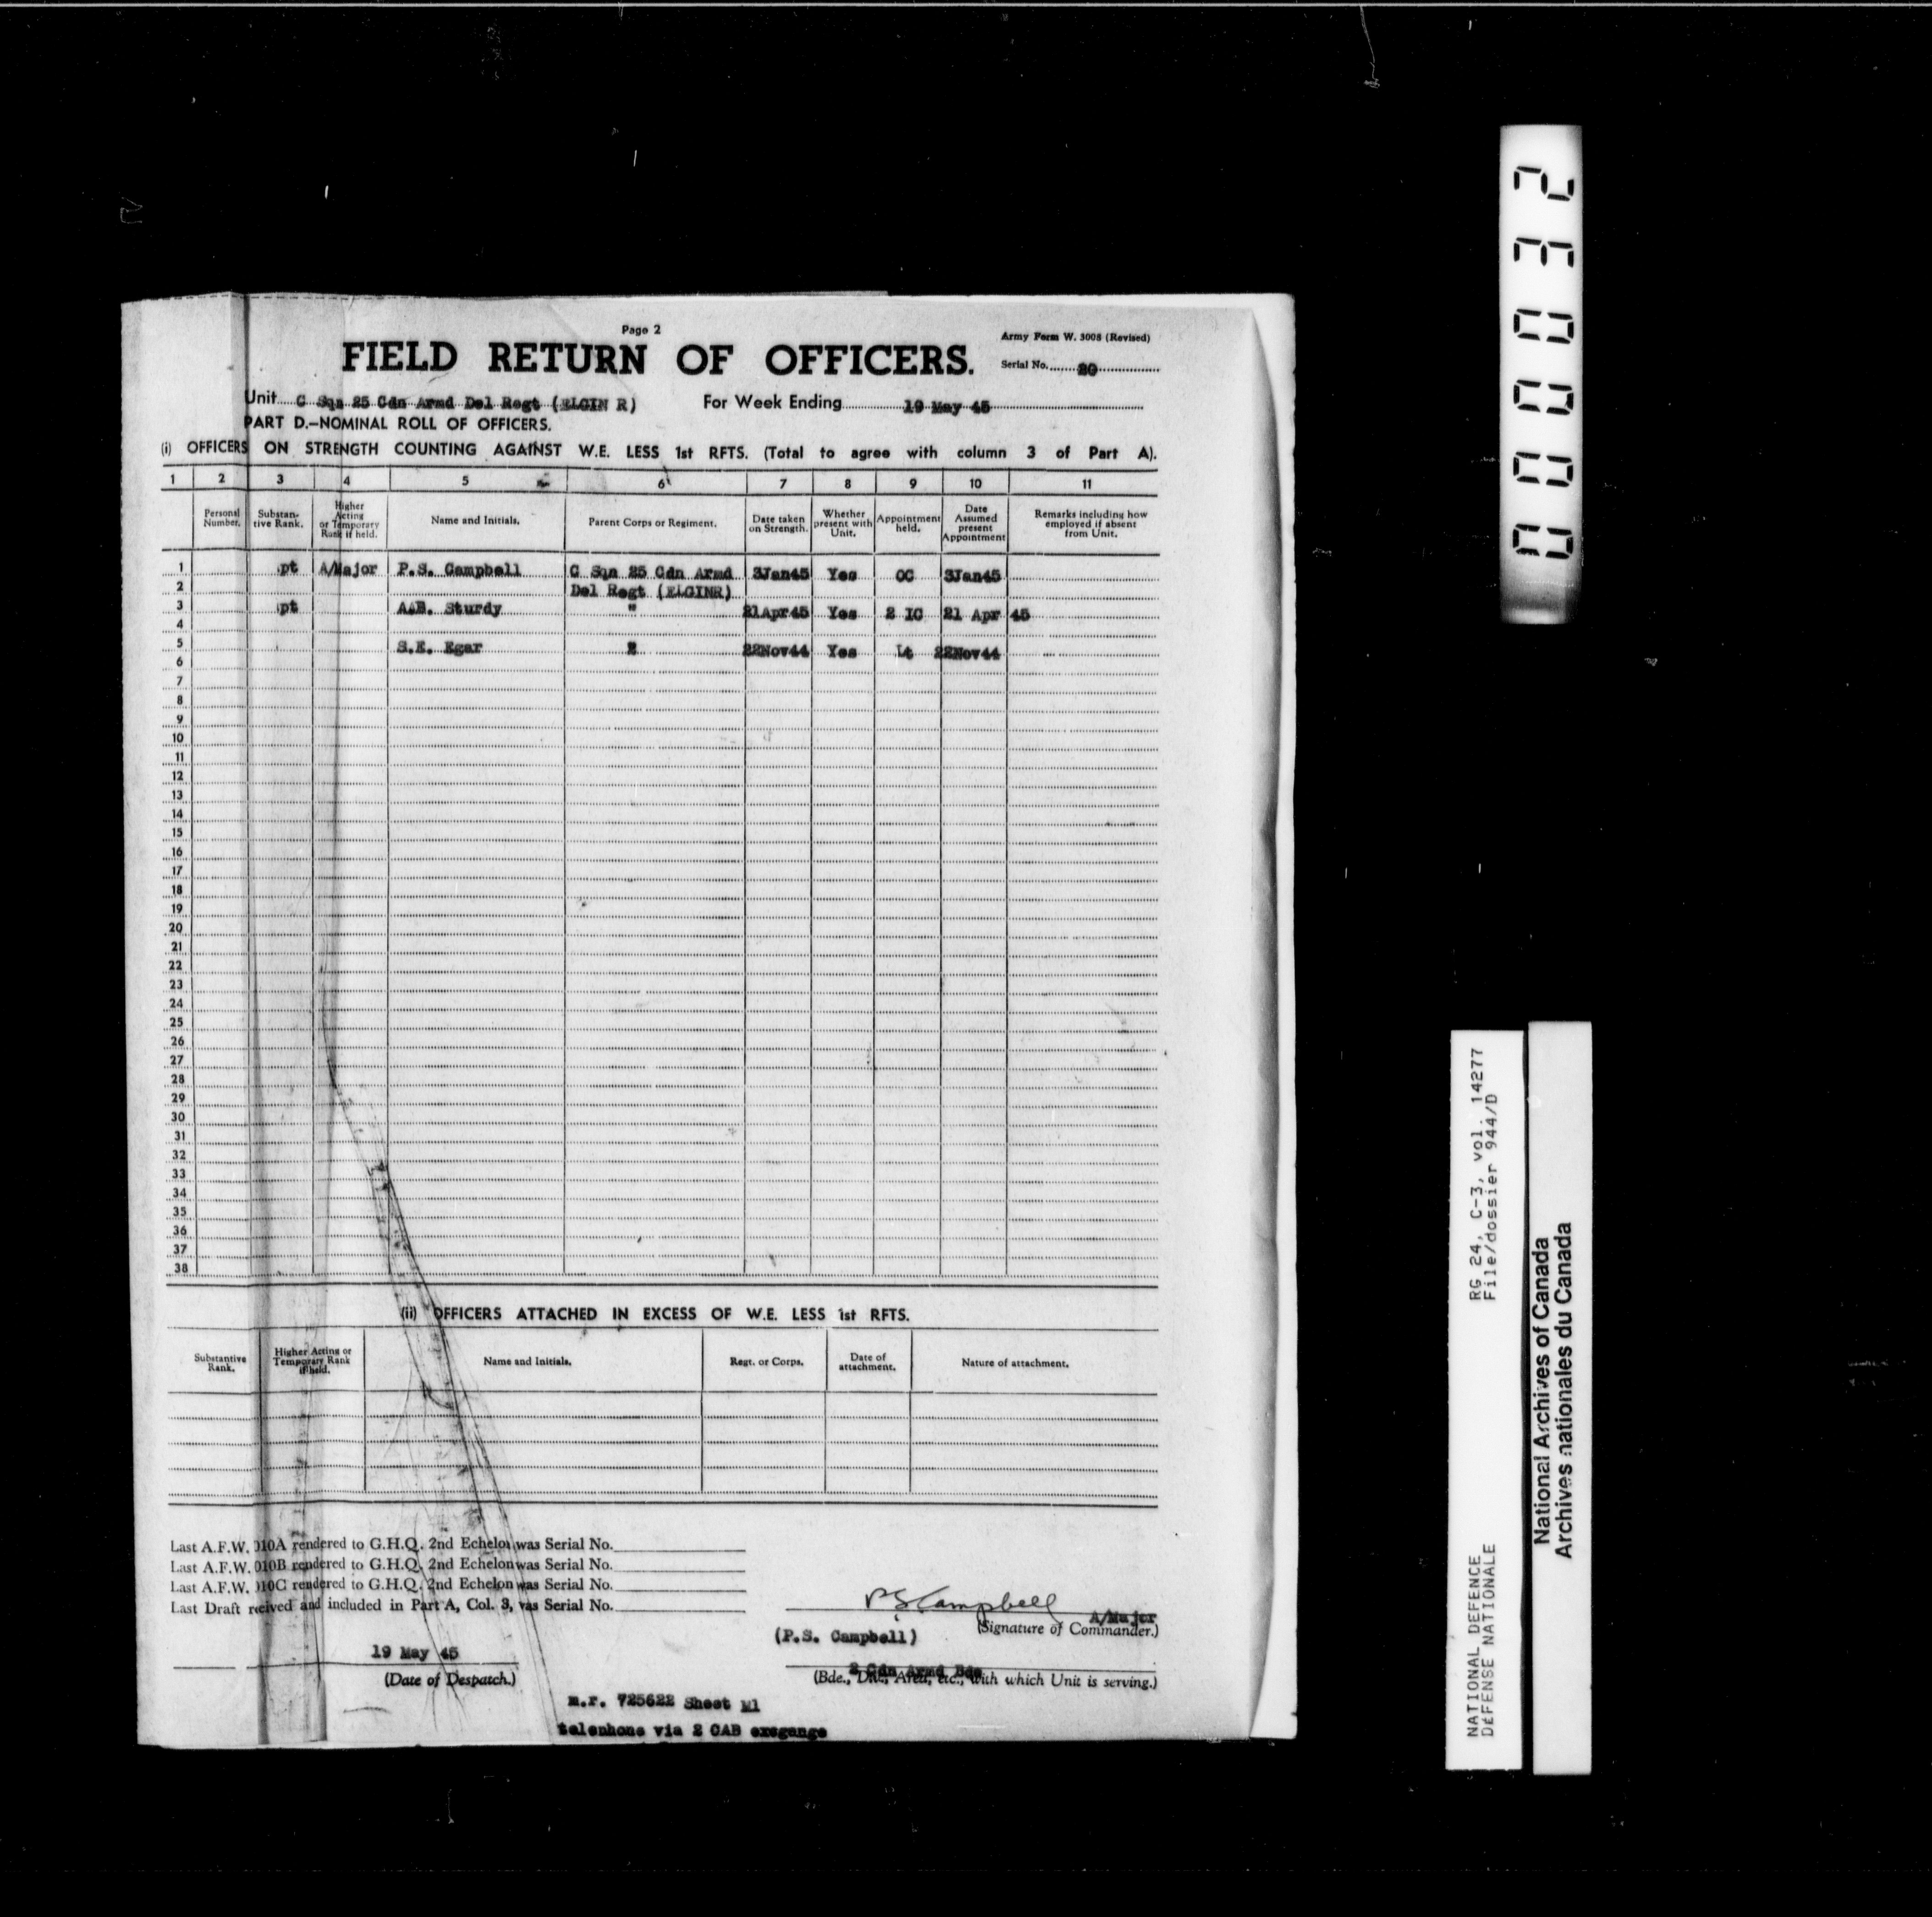 Page 2
FIELD RETURN OF OFFICERS.
Army Form W. 3008 (Revised)
Serial No. 20
Unit C Sqn 25 Cdn Armd Del Regt (ELGIN R)
For Week Ending 19 May 45
PART D.—NOMINAL ROLL OF OFFICERS.
(i) OFFICERS ON STRENGTH COUNTING AGAINST W.E. LESS 1st RFTS. (Total to agree with column 3 of Part A).
1 2 3 4 5 6 7 8 9 10 11
Personal Number.
Substantive Rank.
Higher Acting or Temporary Rank if held.
Name and Initials.
Parent Corps or Regiment.
Date taken on Strength.
Whether present with Unit.
Appointment held.
Date Assumed present Appointment
Remarks including how employed if absent from Unit.
1 pt A/Major P.S. Campbell C Sqn 25 Cdn Armd 3Jan45 Yes OC 3Jan45
2 Del Regt (ELGINR)
3 pt A.B. Sturdy " 21Apr45 Yes 2 IC 21 Apr 45
4
5 S.E. Egar 22Nov44 Yes Lt 22Nov44
6
7
8
9
10
11
12
13
14
15
16
17
18
19
20
21
22
23
24
25
26
27
28
29
30
31
32
33
34
35
36
37
38
(ii) OFFICERS ATTACHED IN EXCESS OF W.E. LESS 1st RFTS.
Substantive Rank.
Higher Acting or Temporary Rank if held.
Name and Initials.
Regt. or Corps.
Date of attachment.
Nature of attachment.
Last A.F.W. 010A rendered to G.H.Q. 2nd Echelon was Serial No.
Last A.F.W. 010B rendered to G.H.Q. 2nd Echelon was Serial No.
Last A.F.W. 010C rendered to G.H.Q. 2nd Echelon was Serial No.
Last Draft reived and included in Part A, Col. 3, was Serial No.
PSCampbell
A/Major
(Signature of Commander.)
(P.S. Campbell)
19 May 45
(Date of Despatch.)
2 Cdn Armd Bde
(Bde., Div., Area, etc., with which Unit is serving.)
m.r. 725622 Sheet M1
telephone via 2 CAB exegange
000032
RG 24, C-3, vol. 14277
File/dossier 944/D
NATIONAL DEFENCE
DÉFENSE NATIONALE
National Archives of Canada
Archives nationales du Canada